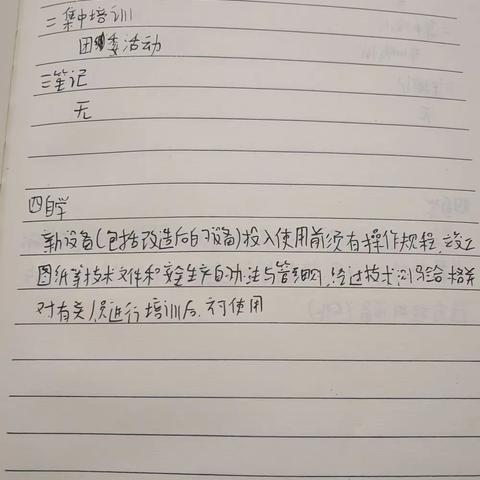 二集中培训
团委活动
三笔记
无
四自学
新设备(包括改造后的设备)投入使用前须有操作规程,竣工
图纸等技术文件和安全生产的办法与管理网,经过技术测验合格并
对有关人员进行培训后,方可使用